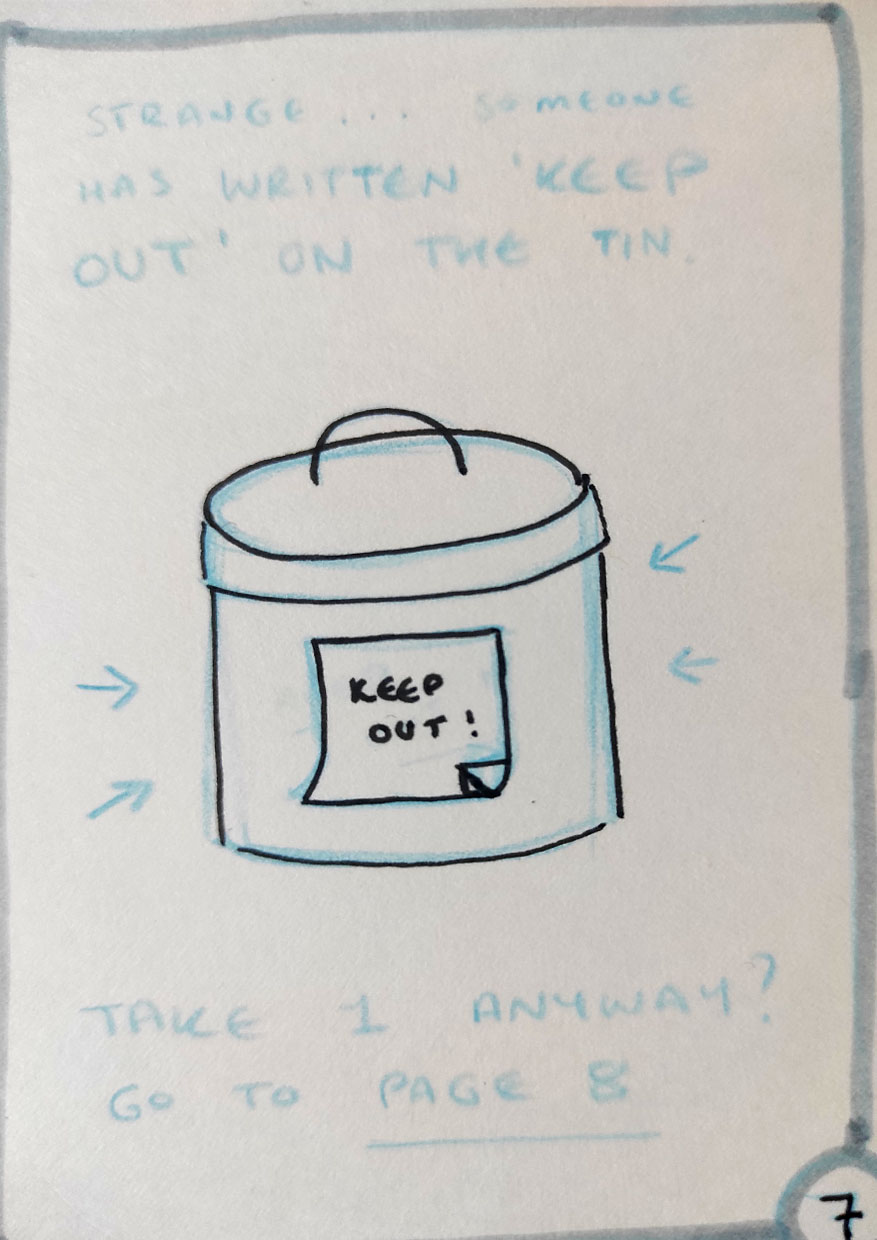 STRANGE... SOMEONE
HAS WRITTEN 'KEEP
OUT' ON THE TIN.
KEEP
OUT!
TAKE 1 ANYWAY?
GO TO PAGE 8
7